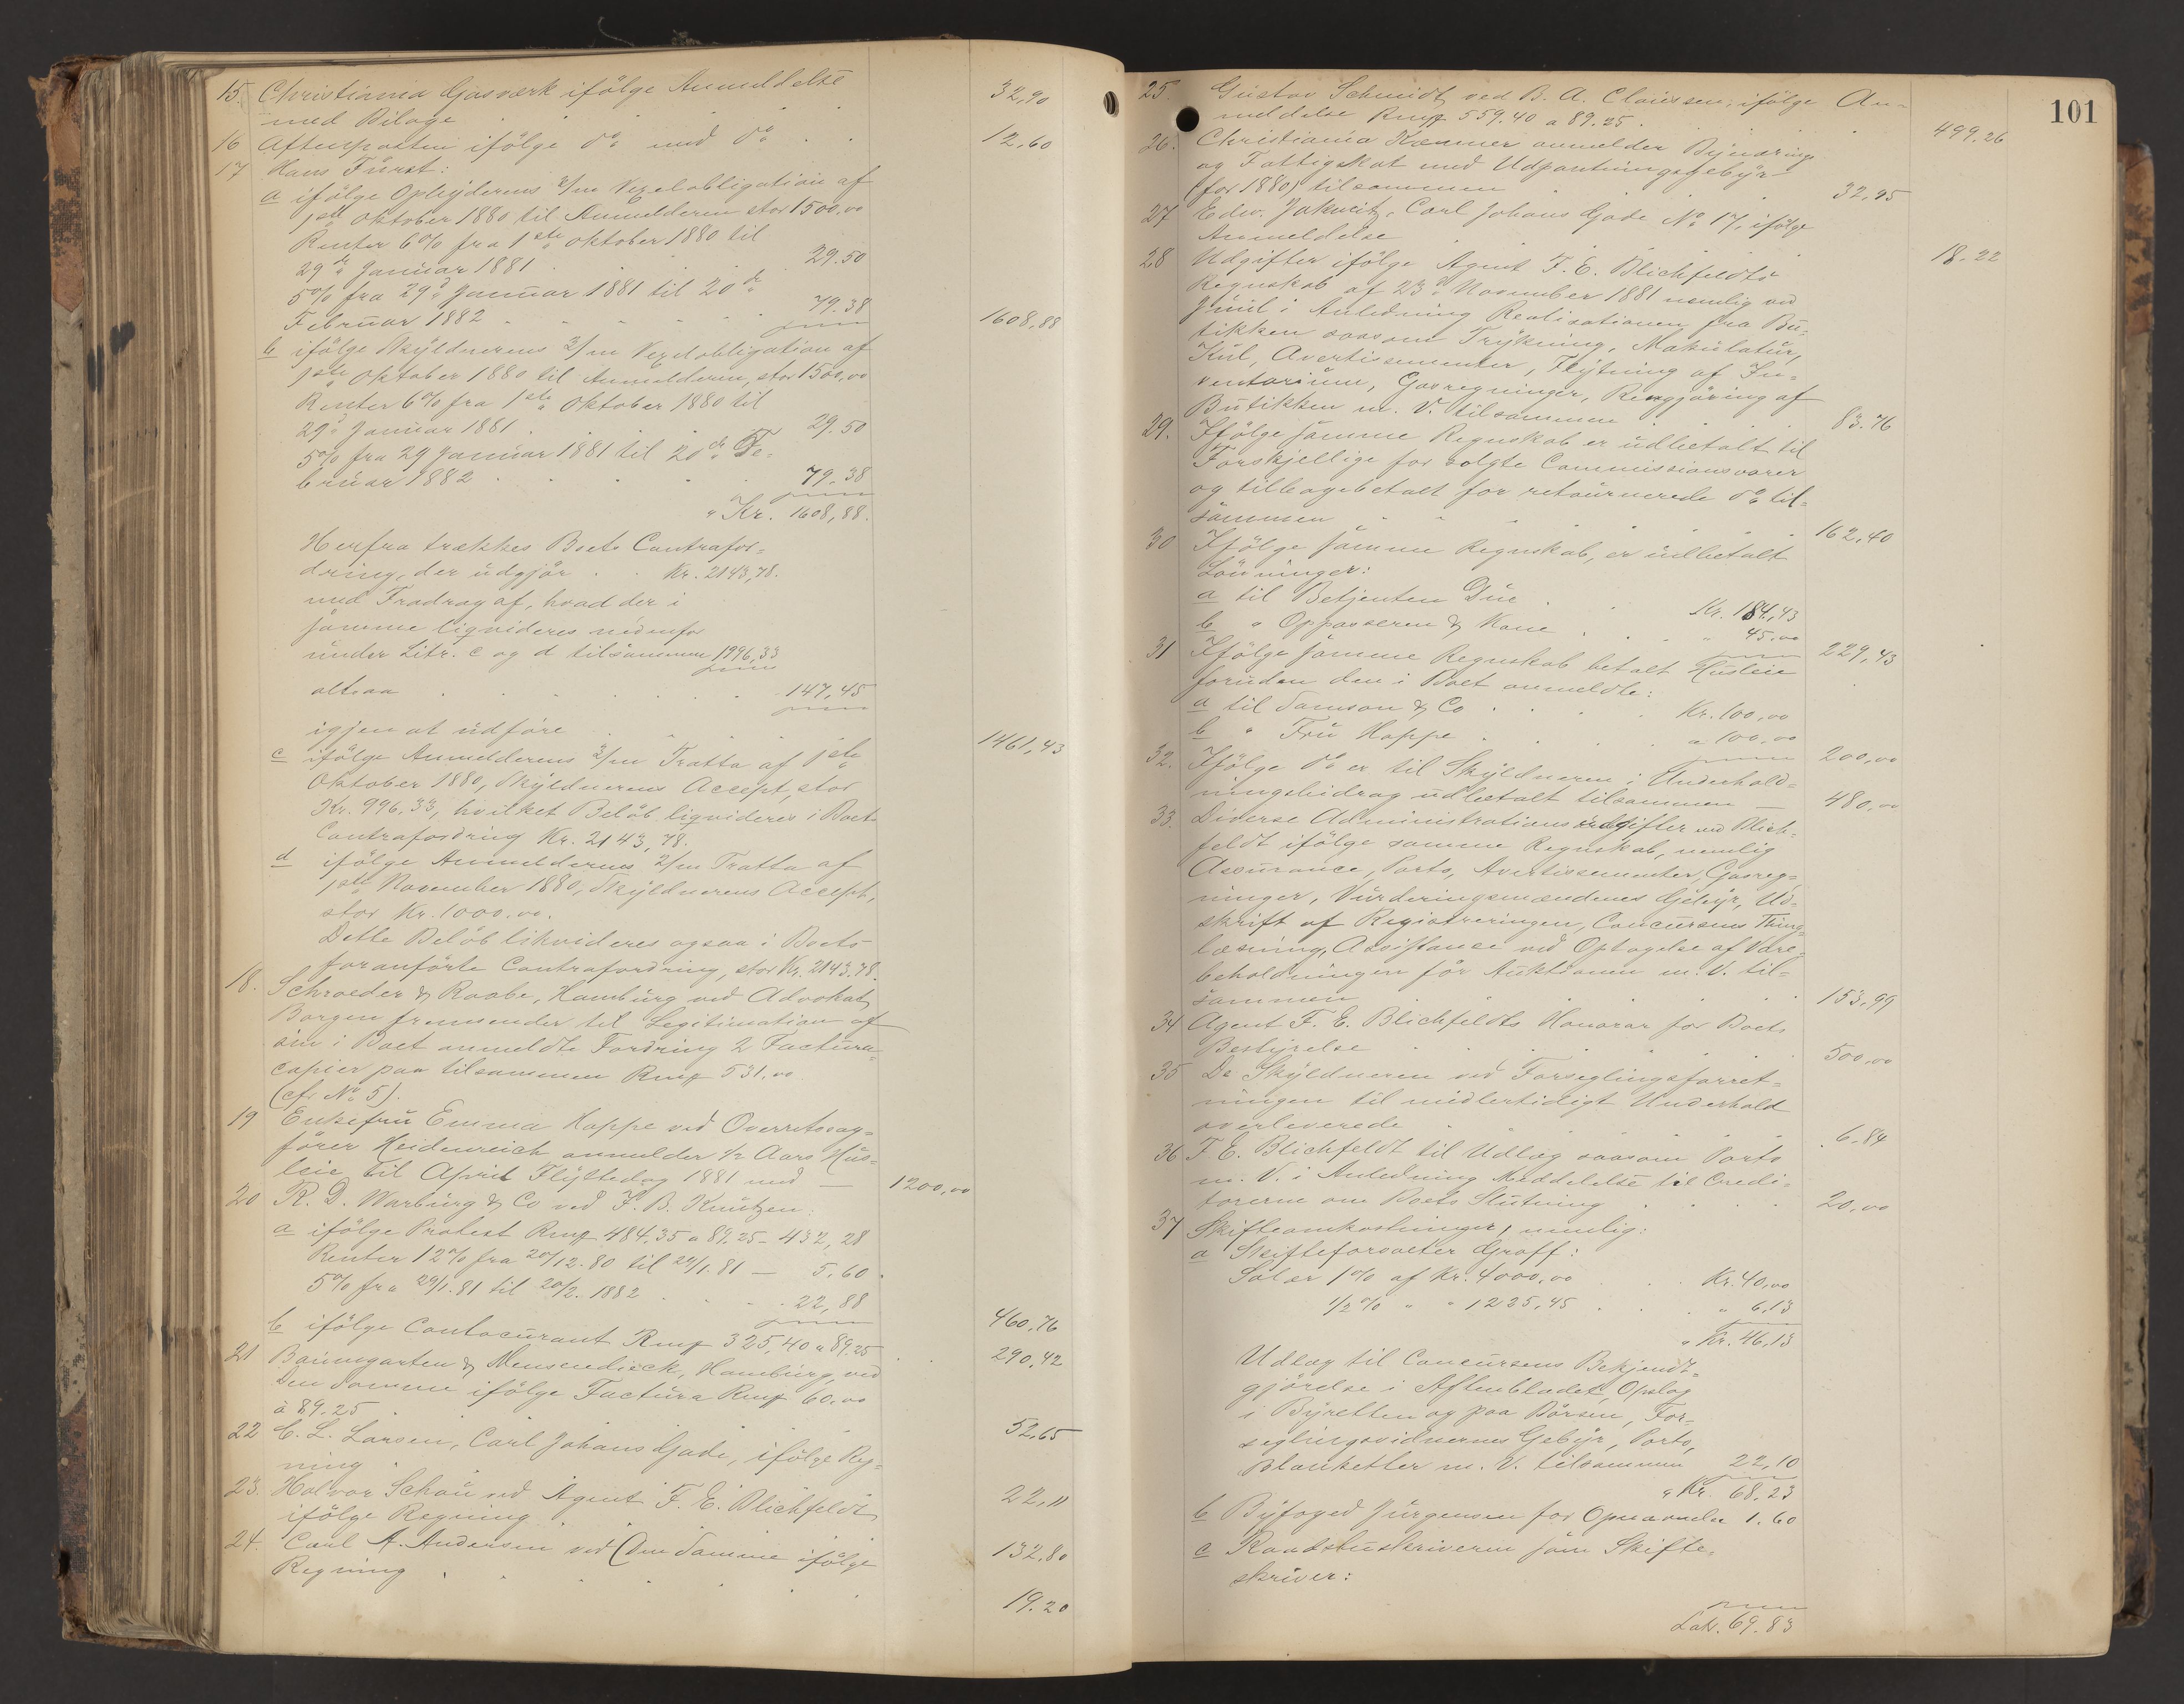 15. Christiania Gasværk ifölge Anmeldelse
med Bilage . . . . 32,90
16 Aftenposten ifölge do med do . . 12,60
17 Hans Fürst:
a ifölge Ophyderens 3/m Vexelobligation af
1ste Oktober 1880 til Anmelderen stor 1500,00
Renter 6% fra 1ste Oktober 1880 til
29de Januar 1881 . . . 29.50
5% fra 29de Januar 1881 til 20de
Februar 1882 . . . . 79.38
1608,88
b ifölge Skyldnerens 3/m Vexelobligation af
1ste Oktober 1880 til Anmelderen, stor 1500,00
Renter 6% fra 1ste Oktober 1880 til
29de Januar 1881 . . . 29.50
5% fra 29 Januar 1881 til 20de Fe-
bruar 1882 . . . . 79,38
Kr. 1608,88.
Herfra trækkes Boets Contrafor-
dring, der udgjör . . Kr. 2143,78.
med Fradrag af, hvad der i
samme liqvideres nedenfor
under Litr. c og d tilsammen 1996,33
altsaa . . . . 147,45
igjen at udföre . . . . 1461,43
c ifölge Anmelderens 2/m Tratta af 1ste
Oktober 1880, Skyldnerens Accept, stor
Kr. 996,33, hvilket Belöb liqvideres i Boets
Contrafordring Kr. 2143,78.
d ifölge Anmelderens 2/m Tratta af
1ste November 1880, Skyldnerens Accept,
stor Kr. 1000.00.
Dette Belöb likvideres ogsaa i Boets
foranförte Contrafordring, stor Kr. 2143.78.
18. Schroeder & Raabe, Hamburg ved Advokat
Borgen fremsender til Legitimation af
sin i Boet anmeldte Fordring 2 Factura-
copier paa tilsammen Rmp 531,00
(cfr No 5).
19 Enkefru Emma Hoppe ved Overretssag-
förer Heidenreich anmelder 1/2 Aars Hus-
leie til April Flyttedag 1881 med — 1200,00
20 R. D. Warburg & Co ved F. B. Knutzen:
a ifölge Protest Rmp 484.35 a 89.25 - 432,28
Renter 12% fra 20/12.80 til 29/1.81 — 5,60
5% fra 29/1.81 til 20/2.1882 . . . 22,88
460,76
b ifölge Contocurant Rmp 325,40 a 89.25 290,42
21 Baumgarten & Mensendieck, Hamburg, ved
Den Samme ifölge Factura Rmp 60.00
à 89.25 . . . . 52,65
22 C. L. Larsen, Carl Johans Gade, ifölge Reg-
ning . . . . 22,11
23. Halvor Schou ved Agent F. E. Blichfeldt
ifölge Regning . . . . 132,80
24. Carl A. Andersen ved Den Samme ifölge
Regning . . . . 19.20
101
25. Gustav Schmidt ved B. A. Claussen, ifölge An-
meldelse Rmp 559.40 a 89.25 . 499,26
26. Christiania Kæmner anmelder Bynærings
og Fattigskat med Udpantningsgebyr
(for 1880) tilsammen . . . 32,95
27 Edw. Jakwitz, Carl Johans Gade No 17, ifölge
Anmeldelse . . . . 18.22
28 Udgifter ifölge Agent F. E. Blichfeldts
Regnskab af 23de November 1881 nemlig ved
Juul i Anledning Realisationen fra Bu-
tikken saasom Trykning, Makulatur,
Kul, Avertissementer, Flytning af In-
ventarium, Gasregninger, Rengjöring af
Butikken m. V. tilsammen . . . 83.76
29. Ifölge samme Regnskab er udbetalt til
Forskjellige for solgte Commissionsvarer
og tilbagebetalt for retournerede do til-
sammen . . . . 162,40
30 Ifölge samme Regnskab, er udbetalt
Lönninger:
a til Betjenten Due . . Kr. 184,43
b " Opasseren & Kone . . " 45.00
229,43
31 Ifölge samme Regnskab betalt Husleie
foruden den i Boet anmeldte:
a til Samson & Co . . . Kr. 100,00
b " Fru Hoppe . . . " 100.00
200,00
32. Ifölge do er til Skyldneren i Underhold-
ningsbidrag udbetalt tilsammen — 480,00
33. Diverse Administrationsudgifter ved Blich-
feldt ifölge samme Regnskab, nemlig
Assurance, Porto, Avertissementer, Gasreg-
ninger, Vurderingsmændenes Gebyr, Ud-
skrift af Registreringen, Concursens Thing-
læsning, Assistance ved Optagelse af Vare-
beholdningen för Auktionen m. V. til-
sammen . . . . 153,99
34 Agent F. E. Blichfeldts Honorar for Boets
Bestyrelse . . . . 500,00
35 De Skyldneren ved Forseglingsforret-
ningen til midlertidigt Underhold
overleverede . . . . 6.84
36 F. E. Blichfeldt til Udlæg saasom Porto
m. V. i Anledning Meddelelse til Credi-
torerne om Boets Slutning . . . 20,00
37 Skifteomkostninger, nemlig:
a Skifteforvalter Graff:
Salær 1% af Kr. 4000,00 . . Kr. 40,00
1/2% " " 1225,45 . . " 6,13
Kr. 46,13
Udlæg til Concursens Bekjendt-
gjörelse i Aftenbladet, Opslag
i Byretten og paa Börsen, For-
seglingsvidnernes Gebyr, Porto,
Blanketter m. V. tilsammen 22,10
Kr. 68,23
b Byfoged Jürgensen for Opraabelse 1.60
c Raadstueskriveren som Skifte-
skriver:
Lats. 69.83